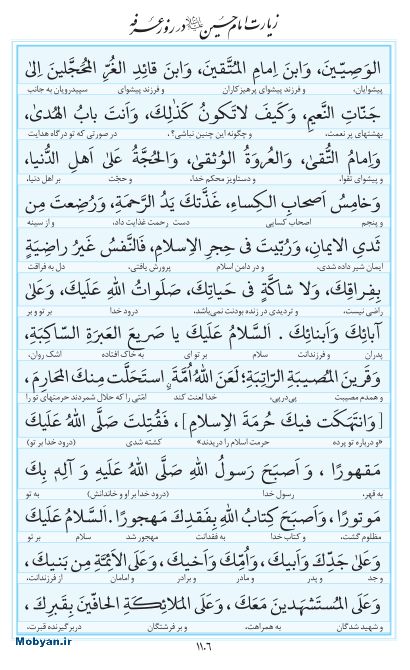 زیارت امام حسین علیه‌السلام در روز عرفه
الوَصِيّينَ، وَابنَ اِمامِ المُتَّقينَ، وَابنَ قائِدِ الغُرِّ المُحَجَّلينَ اِلىٰ
پیشوایان، و فرزند پیشوای پرهیزکاران و فرزند پیشوای سپیدرویان به جانب
جَنّاتِ النَّعيمِ، وَكَيفَ لاتَكونُ كَذٰلِكَ، وَاَنتَ بابُ الهُدىٰ،
بهشتهای پر نعمت، و چگونه این چنین نباشی؟، در صورتی که تو درگاه هدایت
وَاِمامُ التُّقىٰ، وَالعُروَةُ الوُثقىٰ، وَالحُجَّةُ عَلىٰ اَهلِ الدُّنيا،
و پیشوای تقوا، و دستاویز محکم خدا، و حجّت بر اهل دنیا،
وَخامِسُ اَصحابِ الكِساءِ، غَذَّتكَ يَدُ الرَّحمَةِ، وَرُضِعتَ مِن
و پنجم اصحاب کسایی دست رحمت غذایت داد، و از سینه
ثَديِ الايمانِ، وَرُبّيتَ فى حِجرِ الاِسلامِ، فَالنَّفسُ غَيرُ راضِيَةٍ
ایمان شیر داده شدی، و در دامن اسلام پرورش یافتی، دل به فراقت
بِفِراقِكَ، وَلا شاكَّةٍ فى حَياتِكَ، صَلَواتُ اللهِ عَلَيكَ، وَعَلىٰ
راضی نیست، و تردیدی در زنده بودنت نمی‌باشد، درود خدا بر تو و بر
آبائِكَ وَاَبنائِكَ . اَلسَّلامُ عَلَيكَ يا صَريعَ العَبرَةِ السّاكِبَةِ،
پدران و فرزندانت سلام بر تو ای به خاک افتاده اشک روان،
وَقَرينَ المُصيبَةِ الرّاتِبَةِ؛ لَعَنَ اللهُ اُمَّةً اِستَحَلَّت مِنكَ المَحارِمَ،
و همدم مصیبت پی‌درپی، خدا لعنت کند امّتی را که حلال شمردند حرمتهای تو را
[وَانتَهَكَت فيكَ حُرمَةَ الاِسلامِ]، فَقُتِلتَ صَلَّى اللهُ عَلَيكَ
«و درباره تو پرده حرمت اسلام را دریدند» کشته شدی (درود خدا بر تو)
مَقهورًا ، وَاَصبَحَ رَسولُ اللهِ صَلَّى اللهُ عَلَيهِ وَ آلِهِ بِكَ
به قهر، رسول خدا (درود خدا بر او و خاندانش) به تو
مَوتورًا ، وَاَصبَحَ كِتابُ اللهِ بِفَقدِكَ مَهجورًا. اَلسَّلامُ عَلَيكَ
مظلوم گشت، و کتاب خدا به فقدانت مهجور شد سلام بر تو
وَعَلىٰ جَدِّكَ وَاَبيكَ، وَاُمِّكَ وَاَخيكَ، وَعَلَى الاَئِمَّةِ مِن بَنيكَ،
و جد و پدر و مادر و برادر و امامان از فرزندانت،
وَعَلَى المُستَشهَدينَ مَعَكَ، وَعَلَى المَلائِكَةِ الحافّينَ بِقَبرِكَ،
و شهید شدگان به همراهت، و بر فرشتگان دربرگیرنده قبرت،
Mobyan.ir
۱۱۰۶